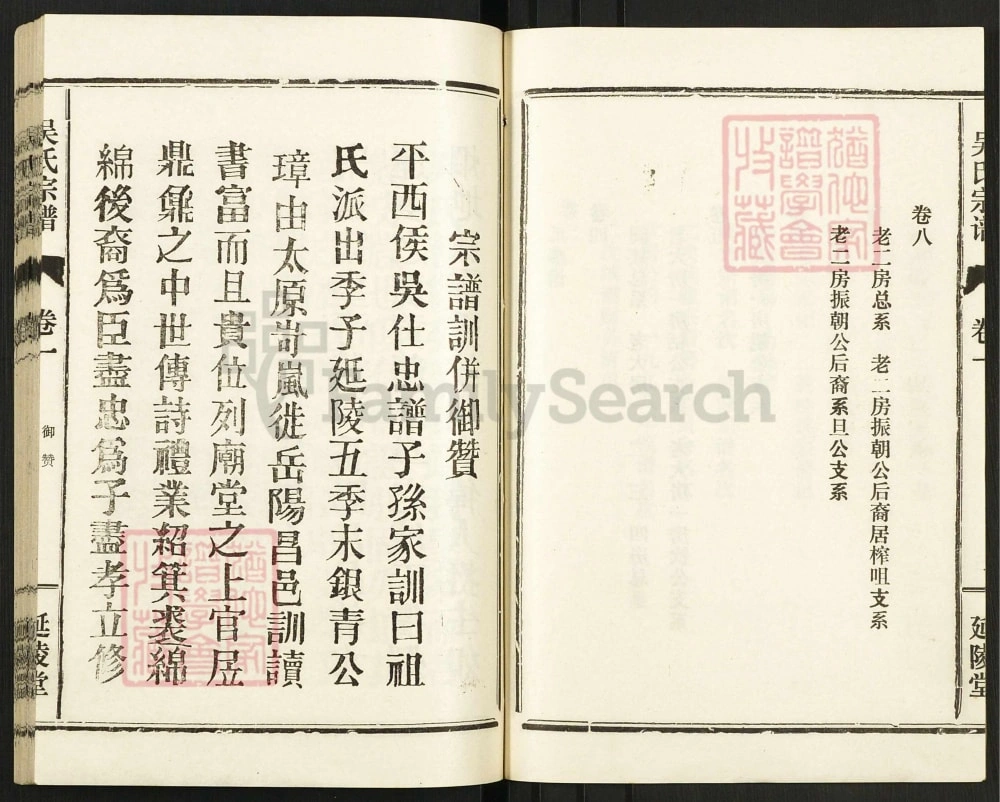 吴氏宗谱
卷一
延陵堂
卷八
老二房总系　老二房振朝公后裔居榨咀支系
老二房振朝公后裔系旦公支系
猶他家
譜學會
收藏
FamilySearch
宗譜訓併御贊
平西侯吳仕忠譜子孫家訓曰祖
氏派出季子延陵五季末銀青公
璋由太原岢嵐徙岳陽昌邑訓讀
書富而且貴位列廟堂之上官居
鼎鼐之中世傳詩禮業紹箕裘綿
綿後裔爲臣盡忠爲子盡孝立修
猶他家
譜學會
收藏
吴氏宗譜
卷一
御赞
延陵堂